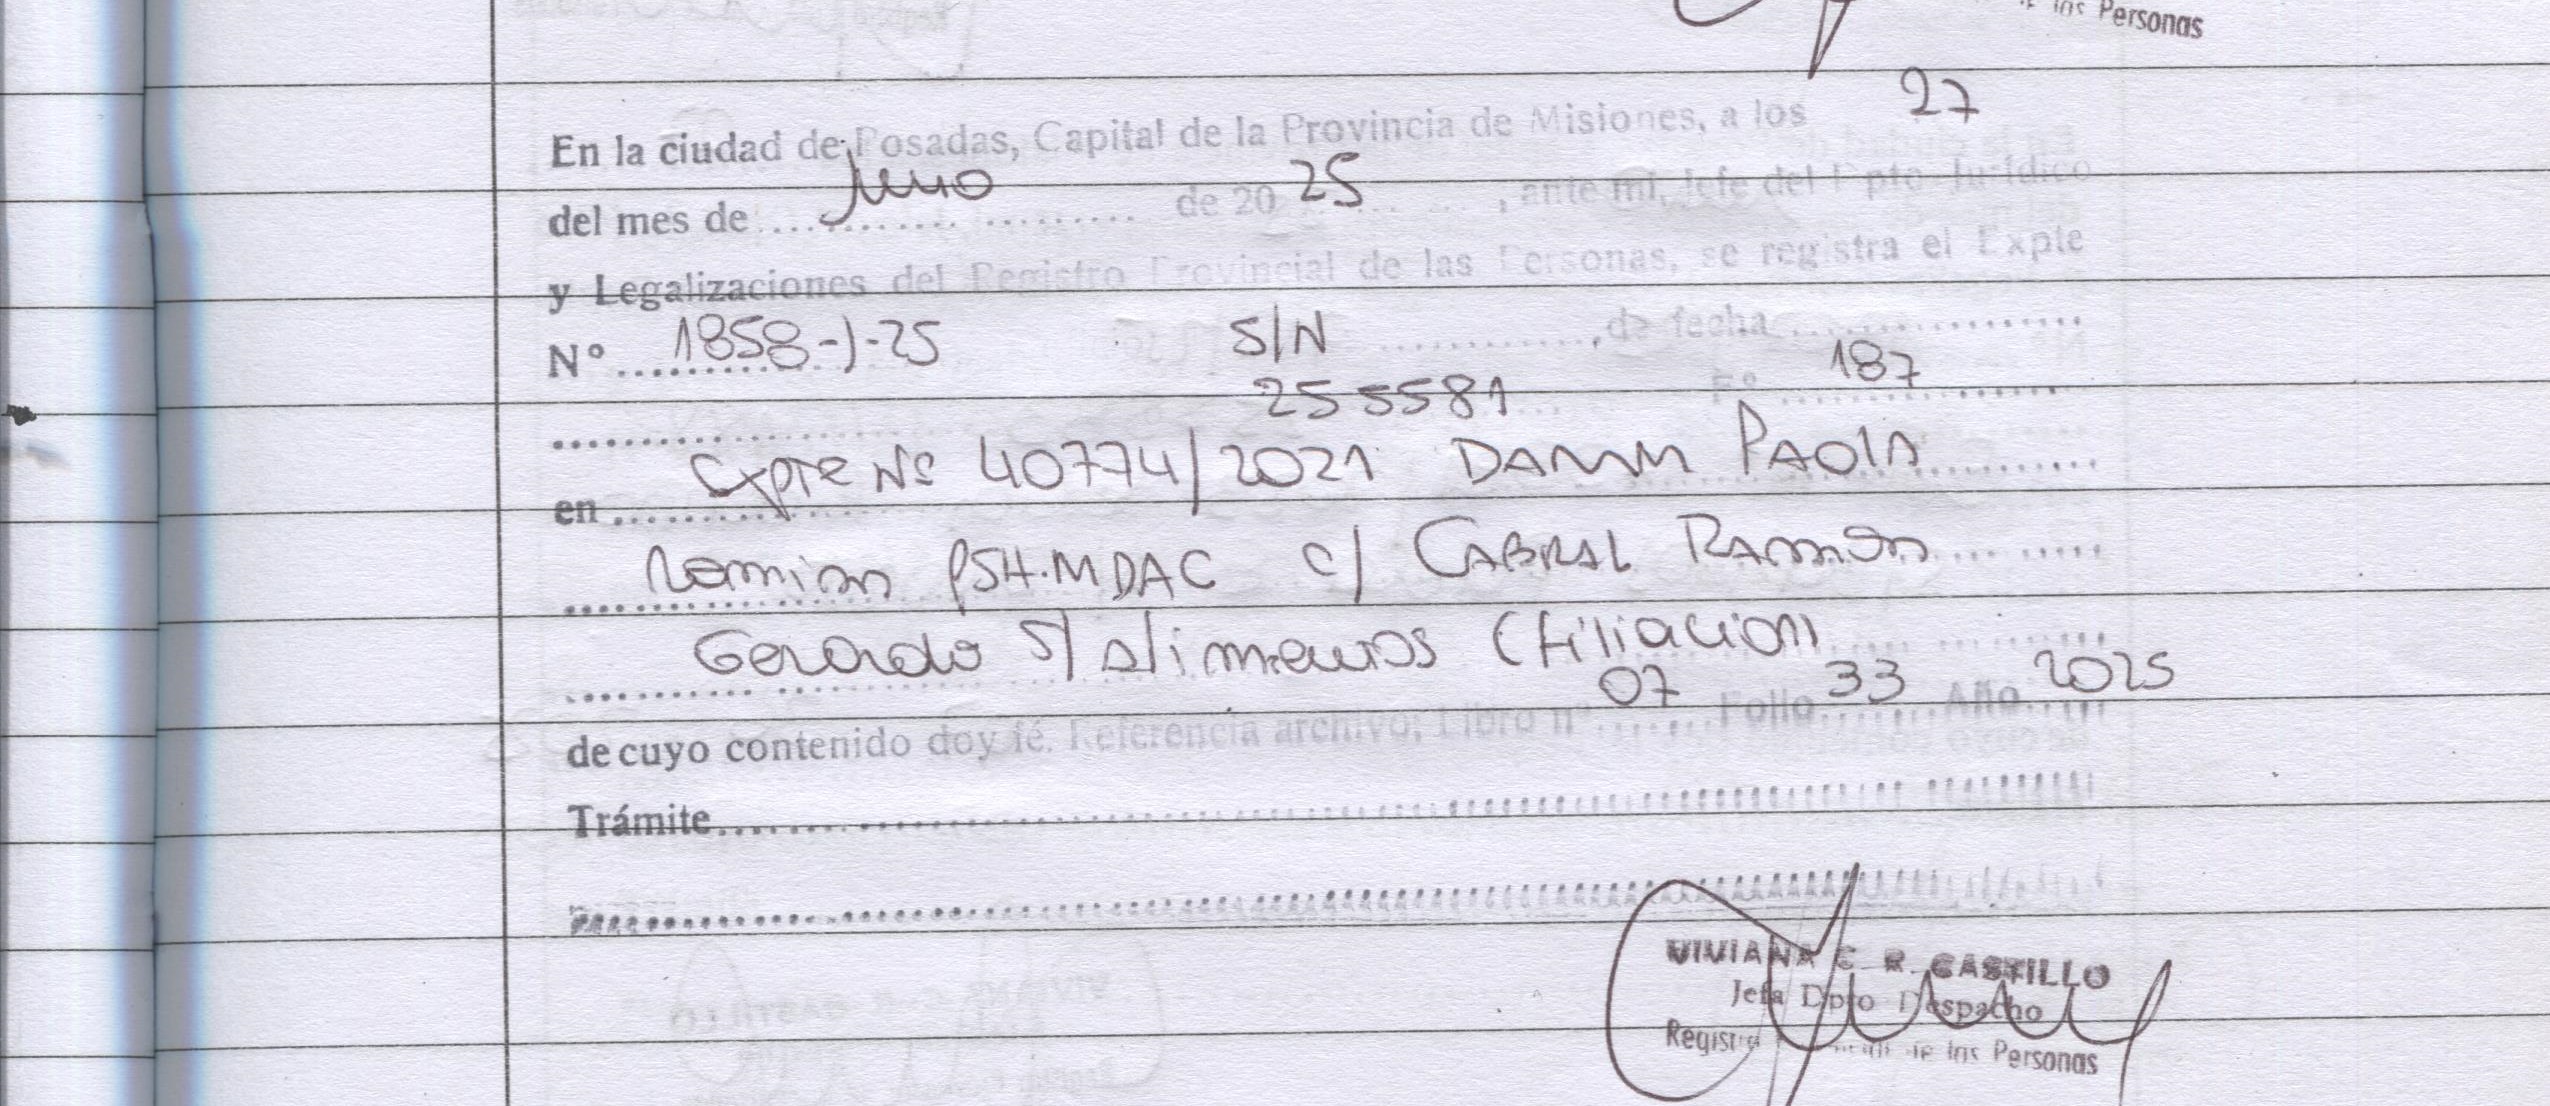 de las Personas
En la ciudad de Posadas, Capital de la Provincia de Misiones, a los 27
del mes de Junio de 20 25, ante mi, Jefe del Dpto Jurídico
y Legalizaciones del Registro Provincial de las Personas, se registra el Expte
Nº 1858-J-25 S/N, de fecha
255581 Fº 187
en Expte Nº 40774/2021 DAMM PAOlA
PSH.MDAC c/ CABRAL RAmón
Gerardo S/ Alimentos (filiación
de cuyo contenido doy fé. Referencia archivo; Libro nº 07 Folio 33 Año 2025
Trámite
VIVIANA C. R. CASTILLO
Jefa Dpto Despacho
Registro de las Personas